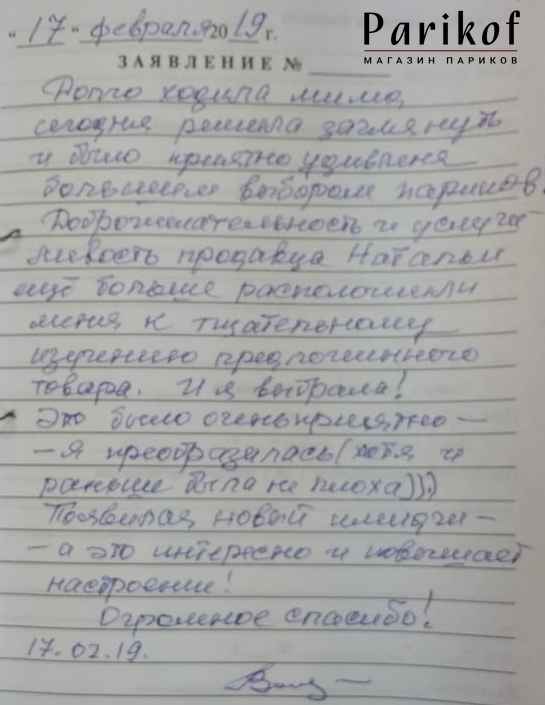 Parikof
МАГАЗИН ПАРИКОВ
"17" февраля 2019 г.
ЗАЯВЛЕНИЕ №
Долго ходила мимо,
сегодня решила заглянуть
и было приятно удивлена
большим выбором париков.
Доброжелательность и услуж-
ливость продавца Натальи
ещё больше расположили
меня к тщательному
изучению предложенного
товара. И я выбрала!
Это было очень приятно -
- Я преобразилась (хотя и
раньше была не плоха)))
Появился новый имидж -
- а это интересно и повышает
настроение!
Огромное спасибо!
17.02.19.